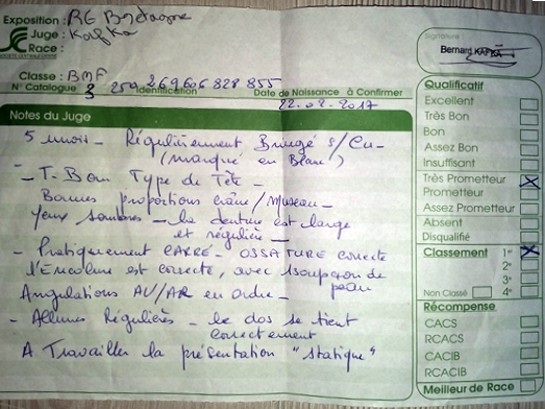 Exposition : RE Bretagne
Juge : Kafka
Race :
SOCIÉTÉ CENTRALE CANINE
Signature :
Bernard KAFKA
Classe : BMF
N° Catalogue 3 Identification Date de Naissance à Confirmer
259 269606828855
22.02.2017
Notes du Juge
5 mois - Régulièrement Bringé s/Cu-
(marqué en Blanc)
- T. Bon Type de Tête -
Bonnes proportions crâne/Museau -
Yeux sombres - la denture est large
et régulière -
- Pratiquement CARRÉ - OSSATURE correcte
l'Encolure est correcte, avec 1 soupçon de
peau
Angulations AV/AR en ordre -
- Allures Régulières - le dos se tient
correctement
A Travailler la présentation "statique"
Qualificatif
Excellent
Très Bon
Bon
Assez Bon
Insuffisant
Très Prometteur X
Prometteur
Assez Prometteur
Absent
Disqualifié
Classement 1er X
2e
3e
Non Classé 4e
Récompense
CACS
RCACS
CACIB
RCACIB
Meilleur de Race